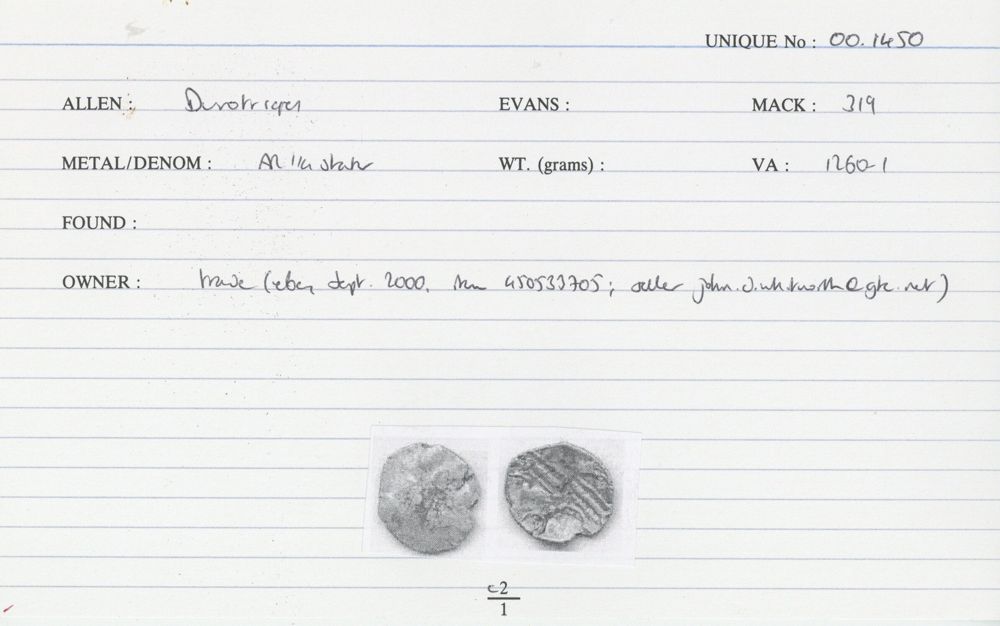 UNIQUE No : 00.1450
ALLEN : Durotriges EVANS : MACK : 319
METAL/DENOM : AR 1/4 stater WT. (grams) : VA : 1260-1
FOUND :
OWNER : trade (ebay, sept. 2000, item 450533705; seller john.j.whitworth@gte.net)
c2
1